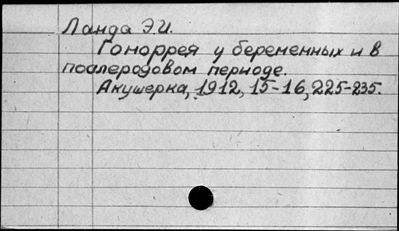 Ланда Э.И.
Гоноррея у беременных и в
послеродовом периоде.
Акушерка, 1912, 15-16, 225-235.